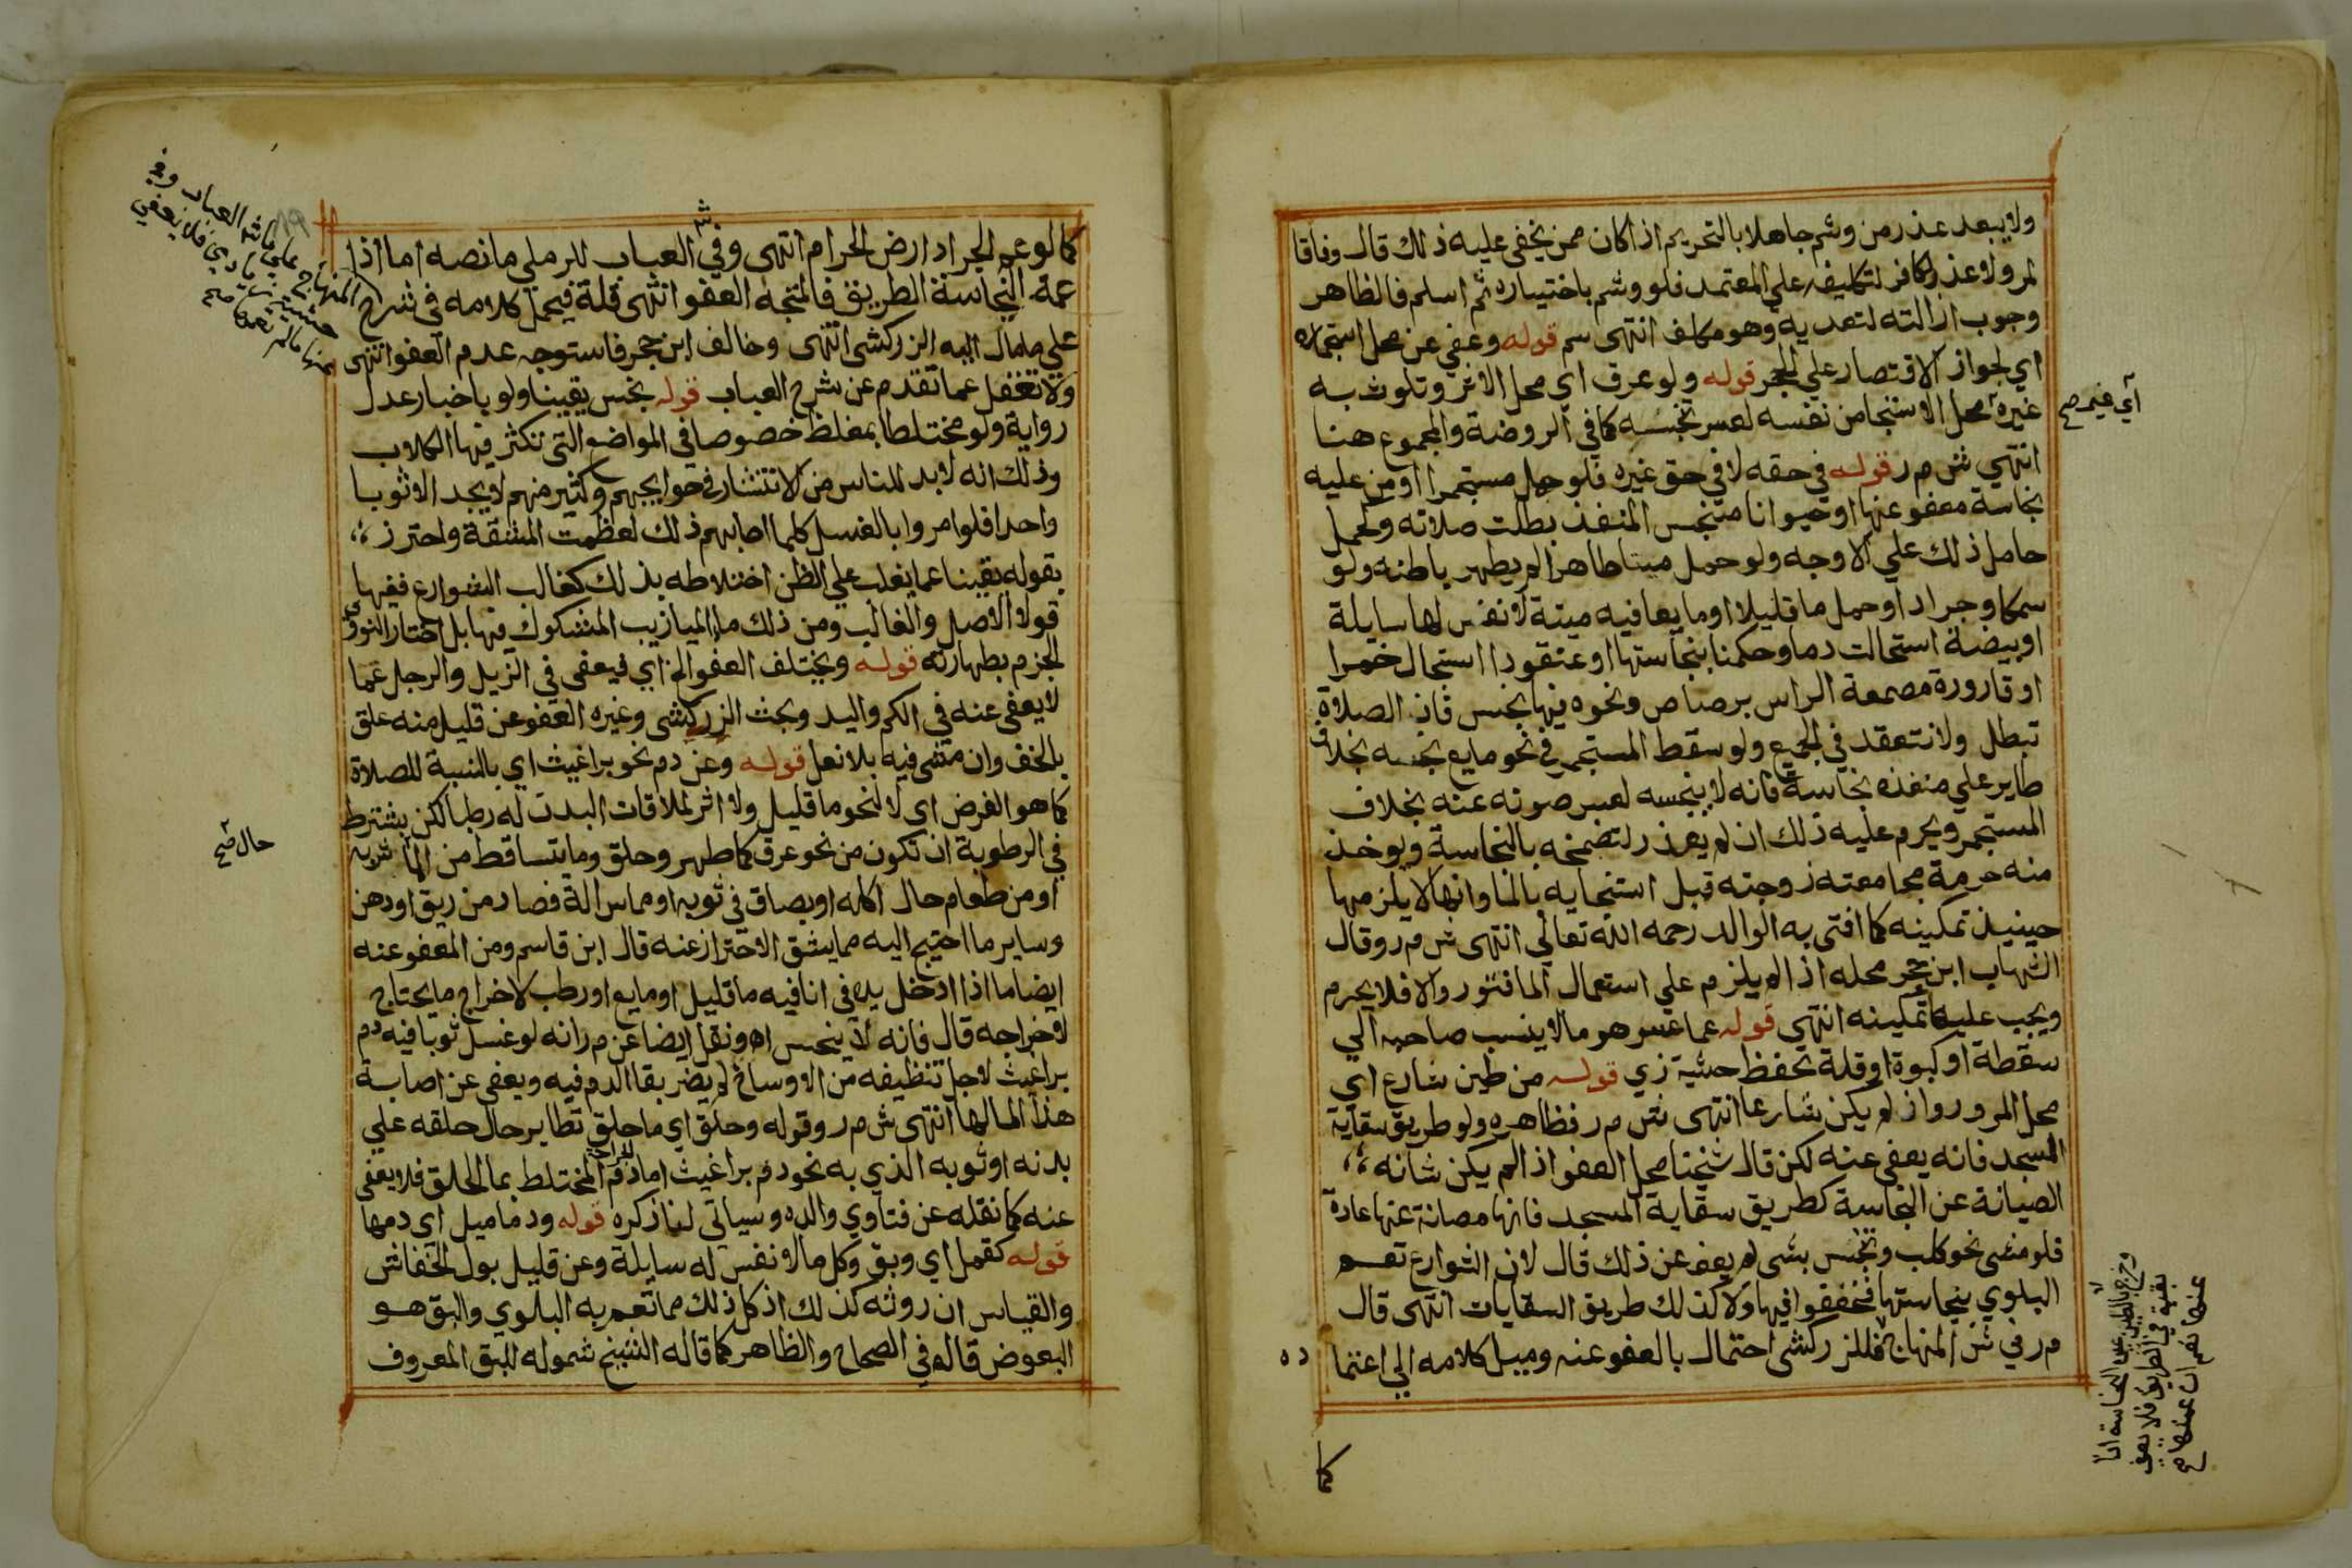 ولا يبعد عذر من وشم جاهلا بالتحريم اذا كان ممن يخفى عليه ذلك قال وفاقا
لمر ولا عذر لكافر لتكليفه علي المعتمد فلو وشم باختياره ثم اسلم فالظاهر
وجوب ازالته لتعديه وهو مكلف انتهى سم قوله وعفي عن محل استجماره
اي لجواز الاقتصار علي الحجر قوله ولو عرق اي محل الاثر وتلوث به
غيره محل الاستنجا من نفسه لعسر تجنسه كما في الروضة والمجموع هنا
اي غير صح
انتهي ش م ر قوله في حقه لا في حق غيره فلو حمل مستجمرا او من عليه
نجاسة معفو عنها او حيوانا متنجس المنفذ بطلت صلاته وحمل
حامل ذلك علي الاوجه ولو حمل ميتا طاهرا لم يطهر باطنه ولو
سمكا وجراد او حمل ما قليلا او مايعا فيه ميتة لا نفس لها سايلة
او بيضة استحالت دما وحكمنا بنجاستها او عنقودا استحال خمرا
او قارورة مصمعة الراس برصاص ونحوه فيها نجس فان الصلاة
تبطل ولا تنعقد في الجميع ولو سقط المستجمر في نحو مايع نجسه بخلاف
طاير علي منفذه نجاسة فانه لا ينجسه لعسر صونه عنه بخلاف
المستجمر ويحرم عليه ذلك ان لم يعذر لتضمخه بالنجاسة ويوخذ
منه حرمة مجامعته زوجته قبل استنجايه بالما وانها لا يلزمها
حينيذ تمكينه كما افتى به الوالد رحمه الله تعالي انتهى ش م ر وقال
الشهاب ابن حجر محله اذا لم يلزم علي استعمال الما فتور والا فلا يحرم
ويجب عليها تمكينه انتهي قوله عما عسر هو ما لا ينسب صاحبه الي
سقطة او كبوة او قلة تحفظ حشية زي قوله من طين شارع اي
محل المرور وان لم يكن شارعا انتهى ش م ر فظاهره ولو طريق سقاية
المسجد فانه يعفى عنه لكن قال شيخنا محل العفو اذا لم يكن شانه
الصيانة عن النجاسة كطريق سقاية المسجد فانها مصانة عنها عادة
فلو مشى نحو كلب وتنجس بشى لم يعف عن ذلك قال لان الشوارع تعم
البلوي بنجاستها فخففوا فيها ولا كذلك طريق السقايات انتهى قال
م ر في ش المنهاج فللزركشى احتمال بالعفو عنه وميل كلامه الي اعتما
ده
وخرج بالطين عين النجاسة اذا
بقيت في الطريق فلا يعفى
عنها نعم ان عمتها صح
كما
كما لو عم الجراد ارض الحرام انتهى وفي ش العباب للرملي ما نصه اما اذا
عمت النجاسة الطريق فالمتجه العفو انتهى قلة فيحمل كلامه في شرح
علي ما مال اليه الزركشى انتهى وخالف ابن حجر فاستوجه عدم العفو انتهى
ولا تغفل عما تقدم عن شرح العباب قوله نجس يقينا ولو باخبار عدل
رواية ولو مختلطا بمغلظ خصوصا في المواضع التى تكثر فيها الكلاب
وذلك انه لا بد للناس من الانتشار في حوايجهم وكثير منهم لا يجد الا ثوبا
واحدا فلو امروا بالغسل كلما اصابهم ذلك لعظمت المشقة واحترز
بقوله يقينا عما يغلب علي الظن اختلاطه بذلك كغالب الشوارع ففيها
قولا الاصل والغالب ومن ذلك ما الميازيب المشكوك فيها بل اختار النووي
الجزم بطهارته قوله ويختلف العفو الخ اي فيعفى في الزيل والرجل عما
لا يعفى عنه في الكم واليد وبحث الزركشى وغيره العفو عن قليل منه علق
بالخف وان مشى فيه بلا نعل قوله وعن دم نحو براغيث اي بالنسبة للصلاة
كما هو الفرض اى لا لنحو ما قليل ولا اثر لملاقات البدن له رطبا لكن يشترط
في الرطوبة ان تكون من نحو عرق كما طهر وحلق وما يتساقط من الما شربه
حال صح
او من طعام حال اكله او بصاق في ثوبه او مماس الة فصاد من ريق او دهن
وساير ما احتيج اليه مما يشق الاحتراز عنه قال ابن قاسم ومن المعفو عنه
ايضا ما اذا ادخل يده في انا فيه ما قليل او مايع او رطب لاخراج ما يحتاج
لاخراجه قال فانه لا ينجس اه ونقل ايضا عن م ر انه لو غسل ثوبا فيه دم
براغيث لاجل تنظيفه من الاوساخ لم يضر بقا الدم فيه ويعفى عن اصابة
هذا الما لها انتهى ش م ر وقوله وحلق اي ما حلق تطاير حال حلقه علي
بدنه او ثوبه الذي به نحو دم براغيث اما دم الجراحة المختلط بما الحلق فلا يعفى
عنه كما نقله عن فتاوي والده وسياتي لنا ذكره قوله ودماميل اي دمها
قوله كقمل اي وبق وكل ما لا نفس له سايلة وعن قليل بول الخفاش
والقياس ان روثه كذلك اذ كل ذلك مما تعم به البلوي والبق هو
البعوض قاله في الصحاح والظاهر كما قاله الشيخ شموله للبق المعروف